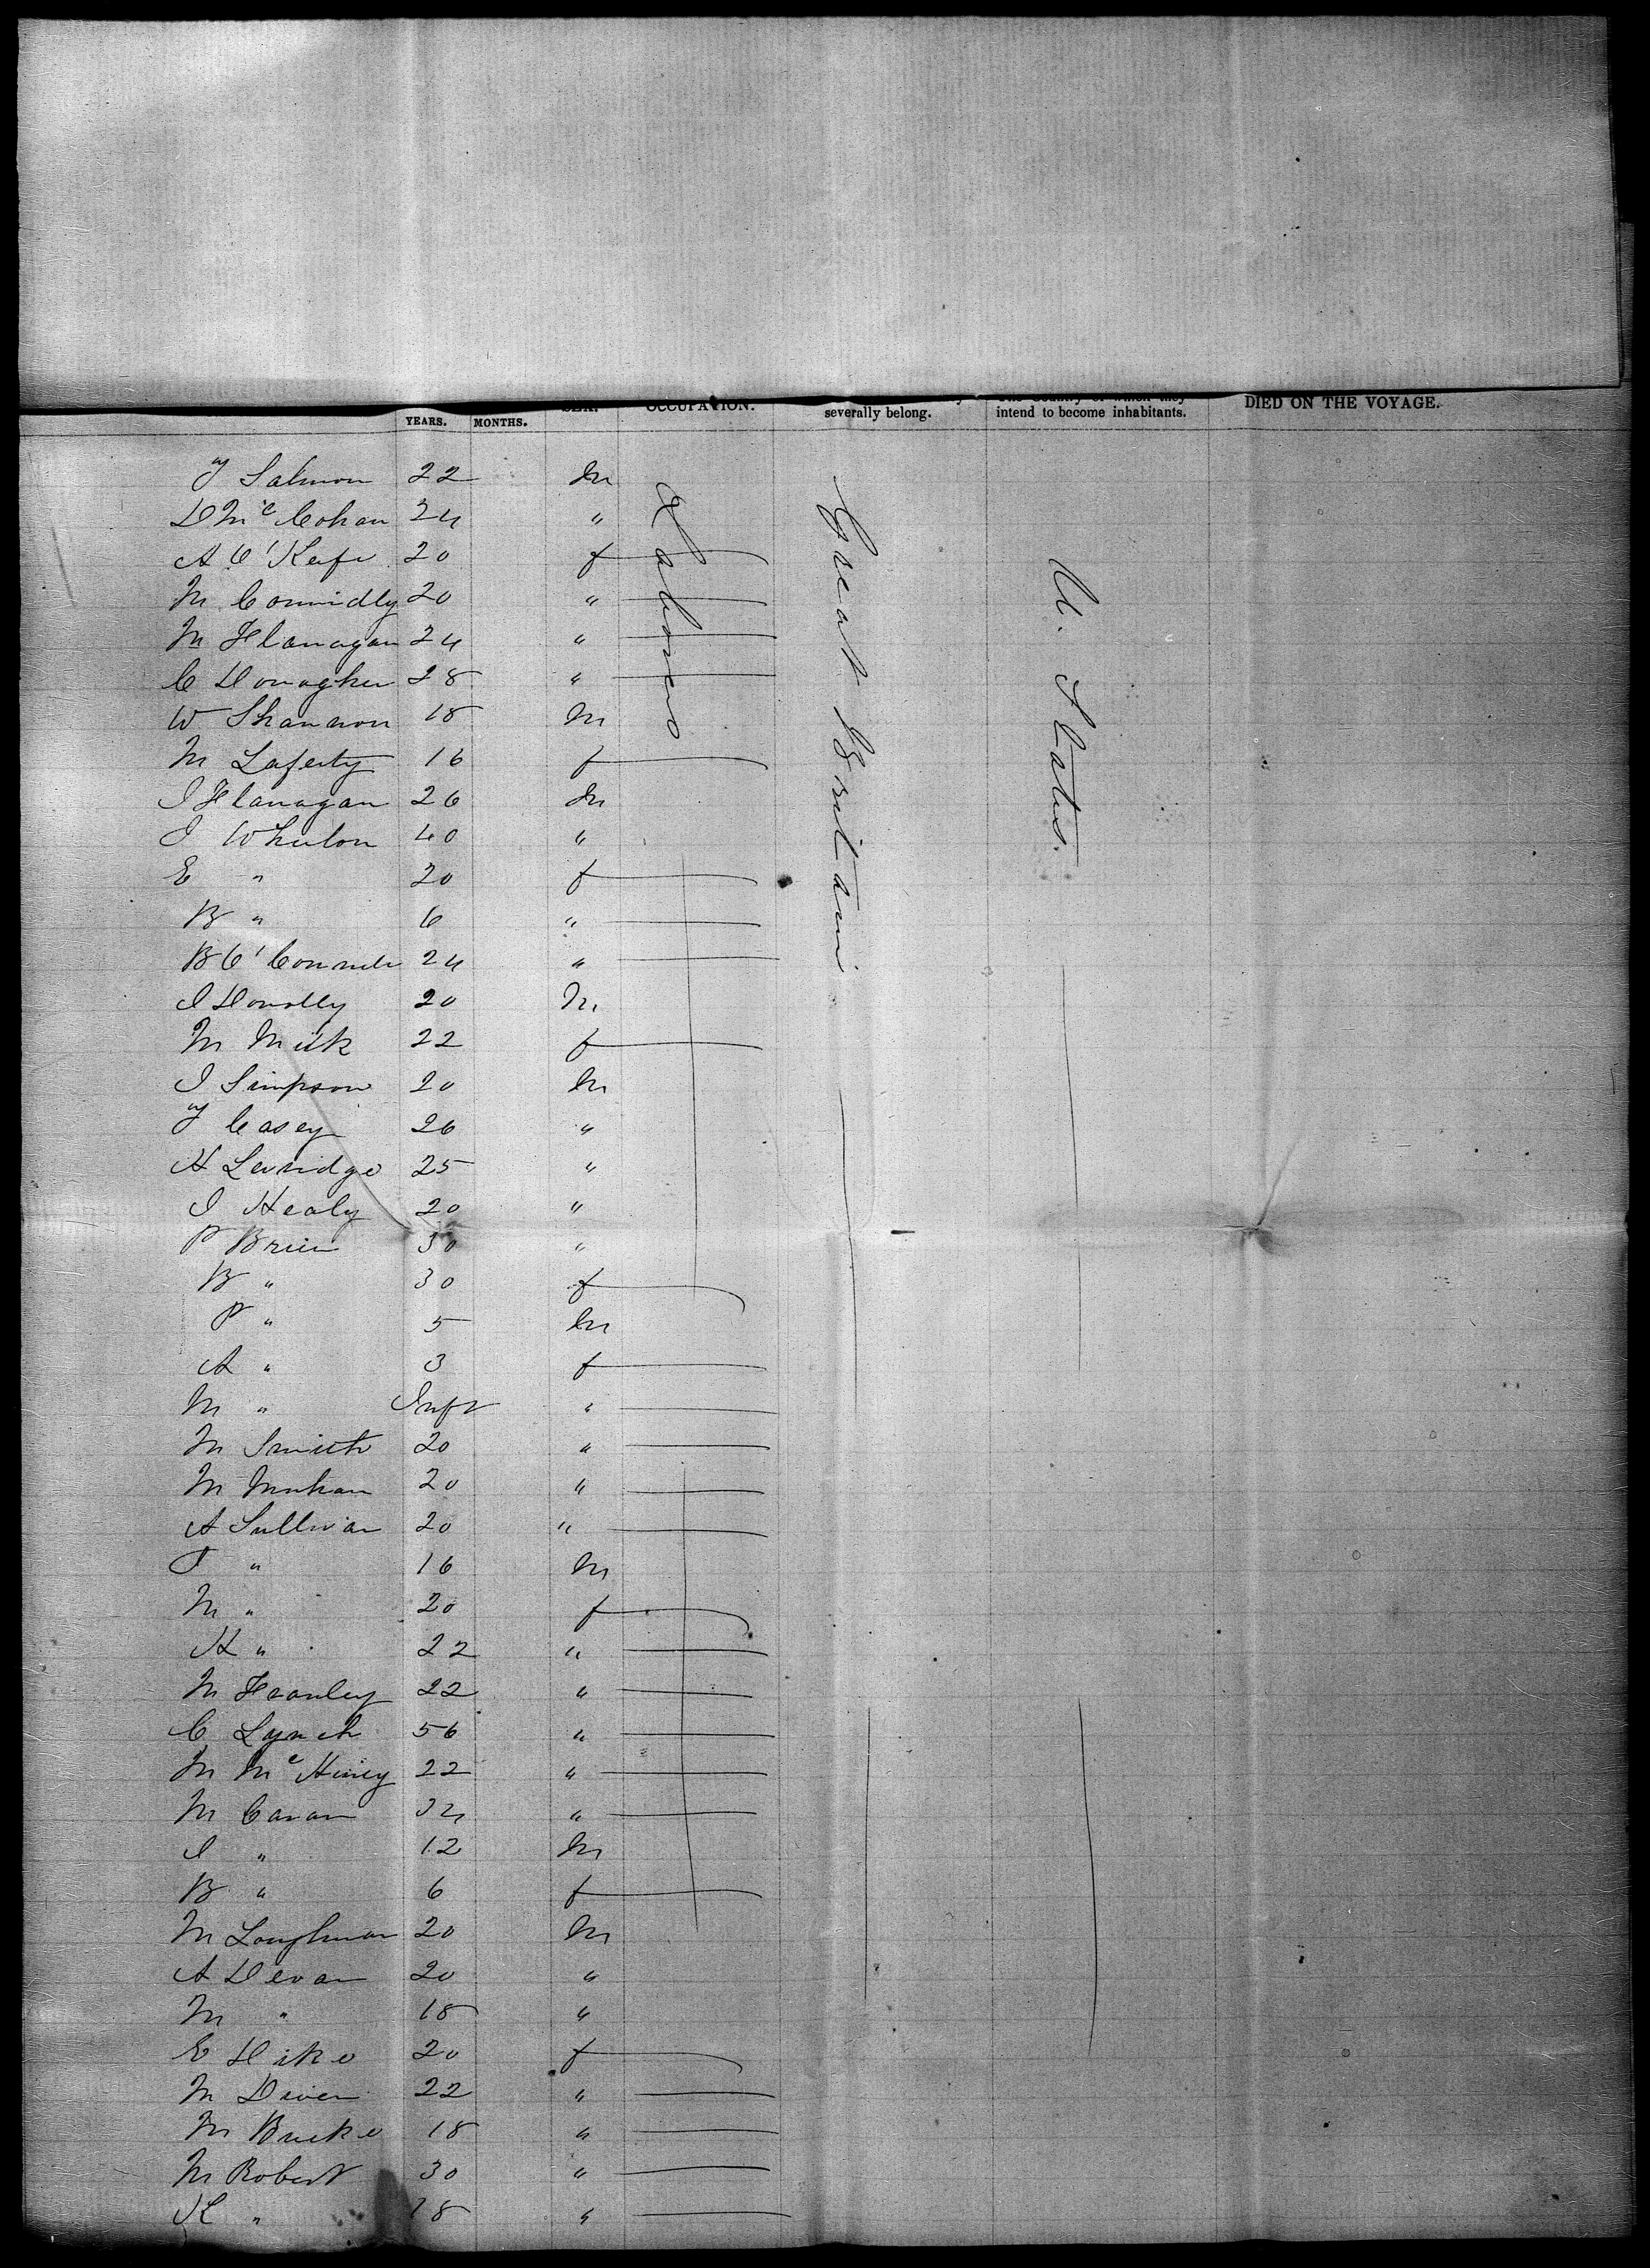 YEARS. MONTHS. SEX. OCCUPATION. severally belong. The Country of which they intend to become inhabitants. DIED ON THE VOYAGE.
Laborers
Great Britain
U. States.
T Salmon 22 M
D McCohan 24 "
A O'Keefe 20 f
M Connidly 20 "
M Flanagan 24 "
C Donagher 28 "
W Shannon 18 M
M Laferty 16 f
J Flanagan 26 M
J Whelon 40 "
E " 20 f
B " 6 "
B O'Connele 24 "
J Donolly 20 M
M 22 f
J Simpson 20 M
T Casey 26 "
H Leveridge 25 "
J Healy 20 "
P Brien 30 "
B " 30 f
P " 5 M
A " 3 f
M " Inft "
M Smith 20 "
M 20 "
A Sullivan 20 "
T " 16 M
M " 20 f
H " 22 "
M Feanley 22 "
C Lynch 56 "
M McHiney 22 "
M Cavan 34 "
J " 12 M
B " 6 f
M Loughman 20 M
A Devan 20 "
M " 18 "
E Dike 20 f
M Diven 22 "
M Burke 18 "
M Robert 30 "
K " 18 "